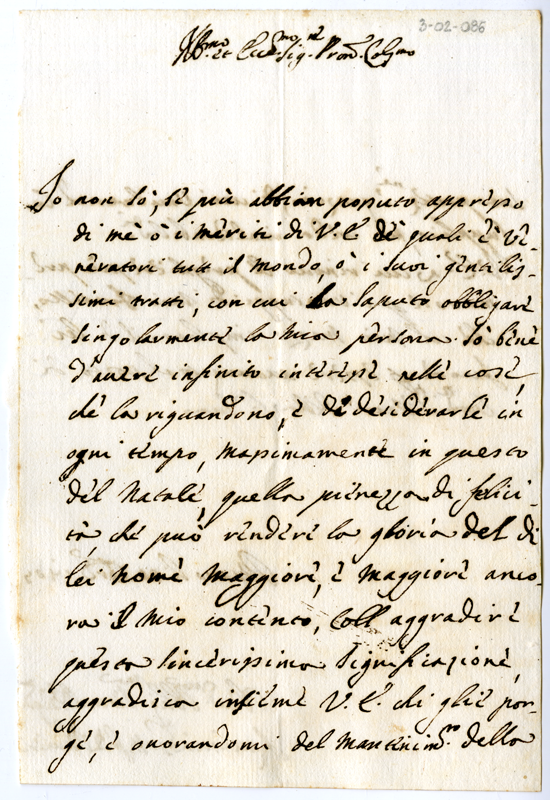 3-02-086
Ill.mo et Ecc.mo Sig.re Pron.e Col.mo
Io non sò, se più abbian potuto appresso
di mè ò i meriti di V.E. de quali è ve-
neratori tutt il mondo, ò i suoi gentilis-
simi tratti, con cui ha saputo obbligare
singolarmente la mia persona. Sò bene
d'avere infinito interesse nelle cose,
che la riguardono, e di desiderarle in
ogni tempo, massimamente in questo
del Natale, quella pienezza di felici-
tà, che può rendere la gloria del di
lei nome maggiore, e maggiore anco-
ra il mio contento, Coll aggradire
questa sincerissima significazione,
aggradisca insieme V.E. chi glie por-
ge, e onorandomi del mantenim.to della